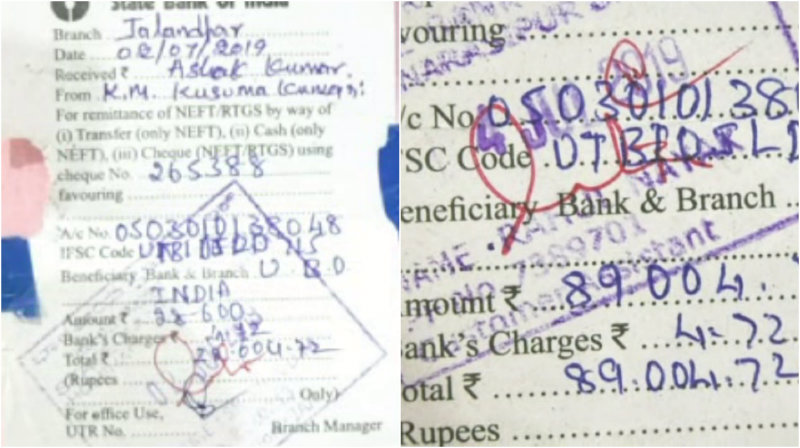 State Bank of India
Branch Jalandhar
Date 02/07/2019
Received ₹ Ashok Kumar.
From K.M. Kusuma
For remittance of NEFT/RTGS by way of
(i) Transfer (only NEFT), (ii) Cash (only
NEFT), (iii) Cheque (NEFT/RTGS) using
cheque No. 265388
favouring
A/c No. 0503010138048
IFSC Code
Beneficiary Bank & Branch U.B.O
INDIA
Amount ₹
Bank's Charges ₹ 4.72
Total ₹
(Rupees
Only)
For office Use,
UTR No. Branch Manager
vouring
NARAINPUR
/c No. 05030101 38
SC Code UTBI0
4 JUL 2019
eneficiary Bank & Branch
NAME
7389701
Customer Assistant
mount ₹ 89004.
ank's Charges ₹ 4.72
otal ₹ 89.004.72
Rupees